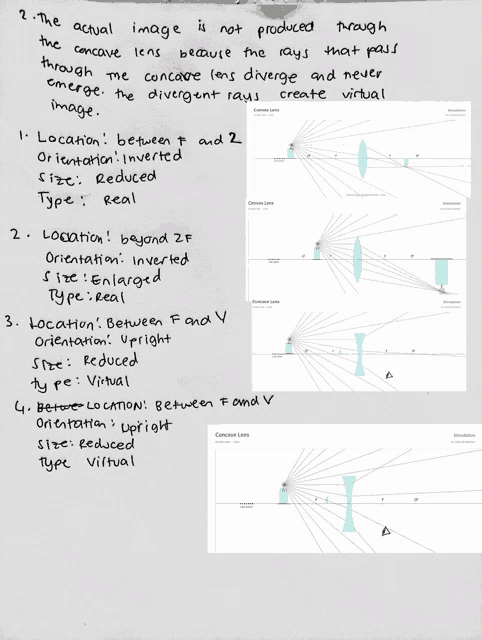 2. The actual image is not produced through
the concave lens because the rays that pass
through the concave lens diverge and never
emerge. the divergent rays create virtual
image.
1. Location: between F and 2
Orientation: Inverted
Size: Reduced
Type: Real
Convex Lens
Simulation
2. Location: beyond 2F
Orientation: Inverted
Size: Enlarged
Type: Real
Convex Lens
Simulation
3. Location: Between F and V
Orientation: Upright
Size: Reduced
type: Virtual
Concave Lens
Simulation
4. LOCATION: Between F and V
Orientation: Upright
Size: Reduced
Type Virtual
Concave Lens
Simulation